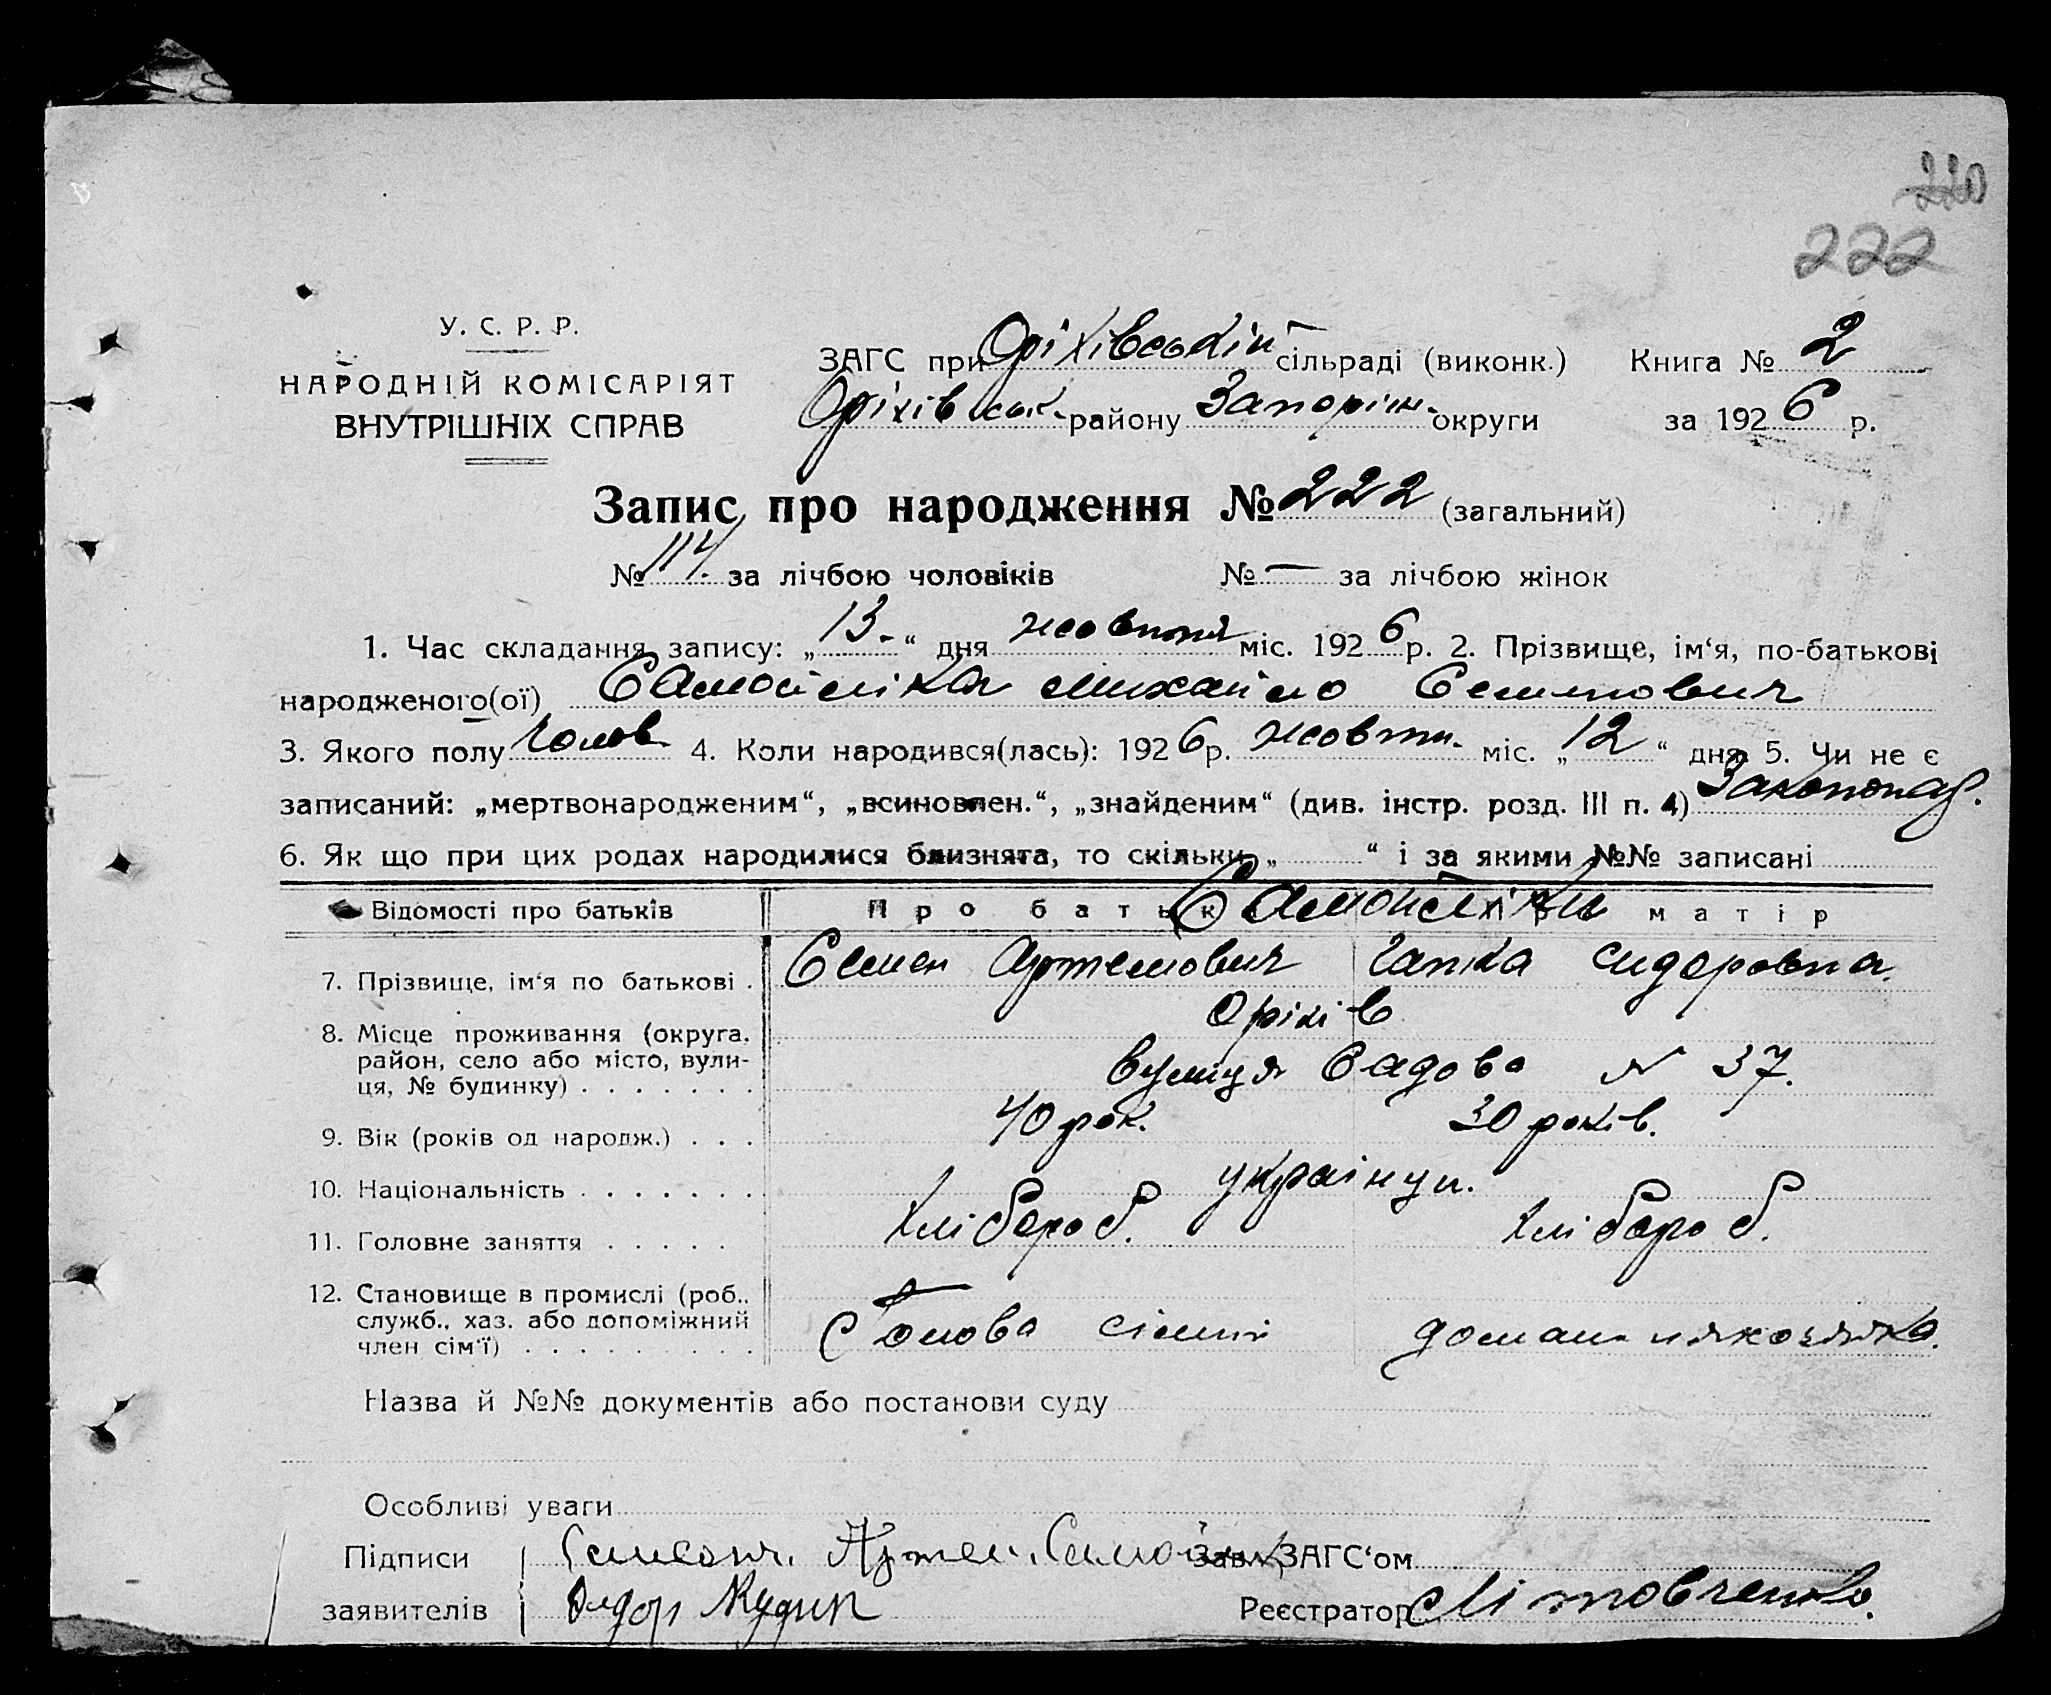 220
222
У. С. Р. Р.
НАРОДНІЙ КОМІСАРІЯТ
ВНУТРІШНІХ СПРАВ
ЗАГС при Оріхівській сільраді (виконк.) Книга № 2
Оріхівськ. району Запоріж. округи за 1926 р.
Запис про народження № 222 (загальний)
№ 114. за лічбою чоловіків № — за лічбою жінок
1. Час складання запису: „13.“ дня жовтня міс. 1926 р. 2. Прізвище, ім‘я, по-батькові
народженого(ої) Самойліка Михайло Семенович
3. Якого полу чолов. 4. Коли народився(лась): 1926 р. жовтн. міс. „12“ дня 5. Чи не є
записаний: „мертвонародженим“, „всиновлен.“, „знайденим“ (див. інстр. розд. III п. 4)
6. Як що при цих родах народилися близнята, то скільки „ “ і за якими №№ записані
Відомості про батьків Про батька Про матір
Самойліки
7. Прізвище, ім‘я по батькові . Семен Артемович Гапка Сидоровна.
8. Місце проживання (округа, Оріхів
район, село або місто, вули-
ця, № будинку) . . . . . . . вулиця Садова № 37.
9. Вік (років од народж.) . . . 40 рок. 30 років.
10. Національність . . . . . . . українци.
11. Головне заняття . . . . . Хлібороб. Хлібороб.
12. Становище в промислі (роб.,
служб., хаз. або допоміжний
член сім‘ї) . . . . . . . . . Голова сімьи
Назва й №№ документів або постанови суду
Особливі уваги
Підписи Артем. Зав. ЗАГС‘ом
заявителів Сидор Реєстратор Літовченко.